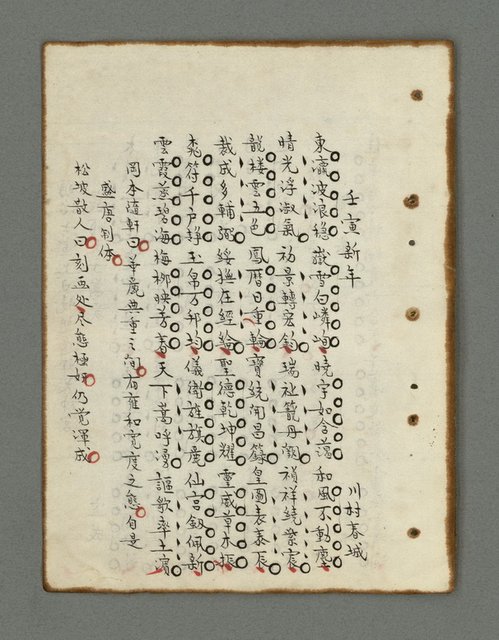 壬寅新年
川村春城
東瀛波浪穩嶽雪白嶙峋曉宇如含藹和風不動塵
晴光浮淑氣初景轉宏鈞瑞祉籠丹禎祥繞紫宸
龍樓雲五色鳳曆日重輪寶統開昌籙皇圖表泰辰
裁成多輔弼綏撫在經綸聖德乾坤耀靈威草木振
桃符千戶靜玉帛万邦均儀衛旌旗麗仙宮釼佩新
雲霞蓬海梅柳映芳春天下萬呼湧謳歌率土濱
岡本蘊軒曰華麗典重之間有雍和寬度之態自是
盛唐制体
松坡散人曰刻画処尽態極妍仍覚渾成